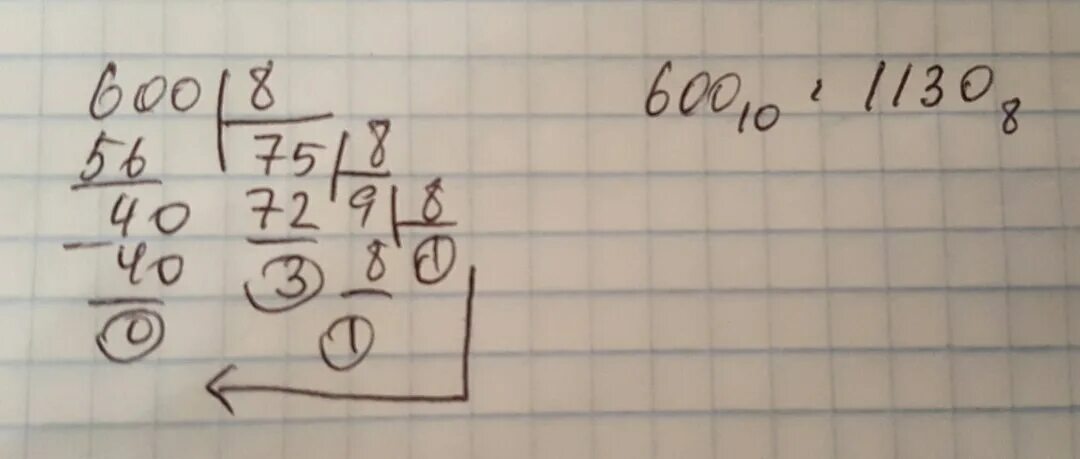 600 8 600₁₀ : 1130₈
56 75 8
40 72 9 8
40 3 8 1
0 1